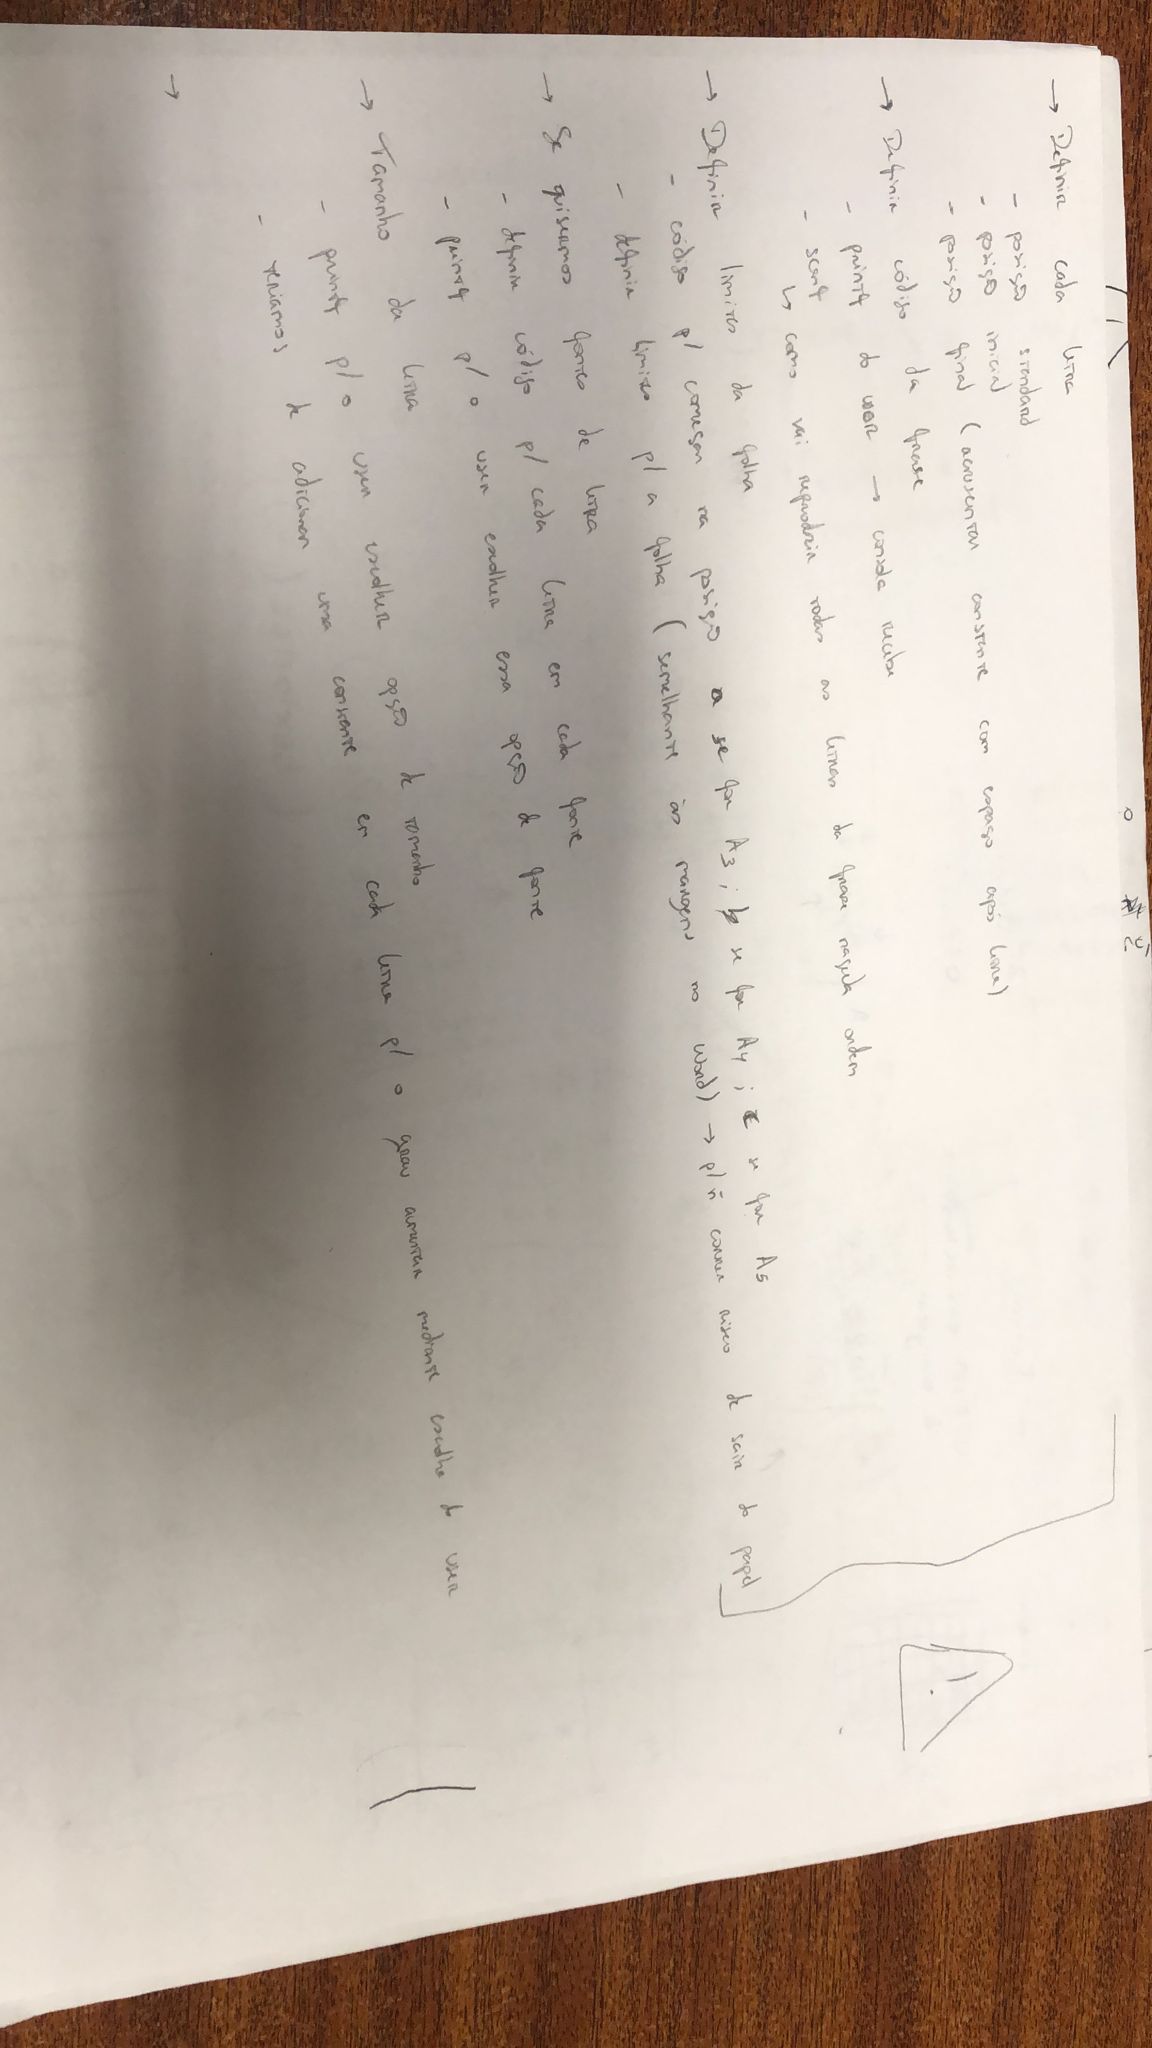 → Definir cada letra
- posição standard
- posição inicial
- posição final (acrescentar constante com espaço após letra)
→ Definir código da frase
- printf do user → consola recebe
- scanf
↳ como vai reproduzir todas as letras da frase naquela ordem
→ Definir limites da folha
- código p/ começar na posição a se for A3; b se for A4; c se for A5
- definir limites p/ a folha (semelhante às margens no word) → p/ ñ correr risco de sair do papel
→ Se quisermos fontes de letra
- definir código p/ cada letra em cada fonte
- printf p/ o user escolher essa opção de fonte
→ Tamanho da letra
- printf p/ o user escolher opção de tamanho
- teríamos de adicionar uma constante em cada letra p/ o grau aumentar mediante escolha do user
→
!